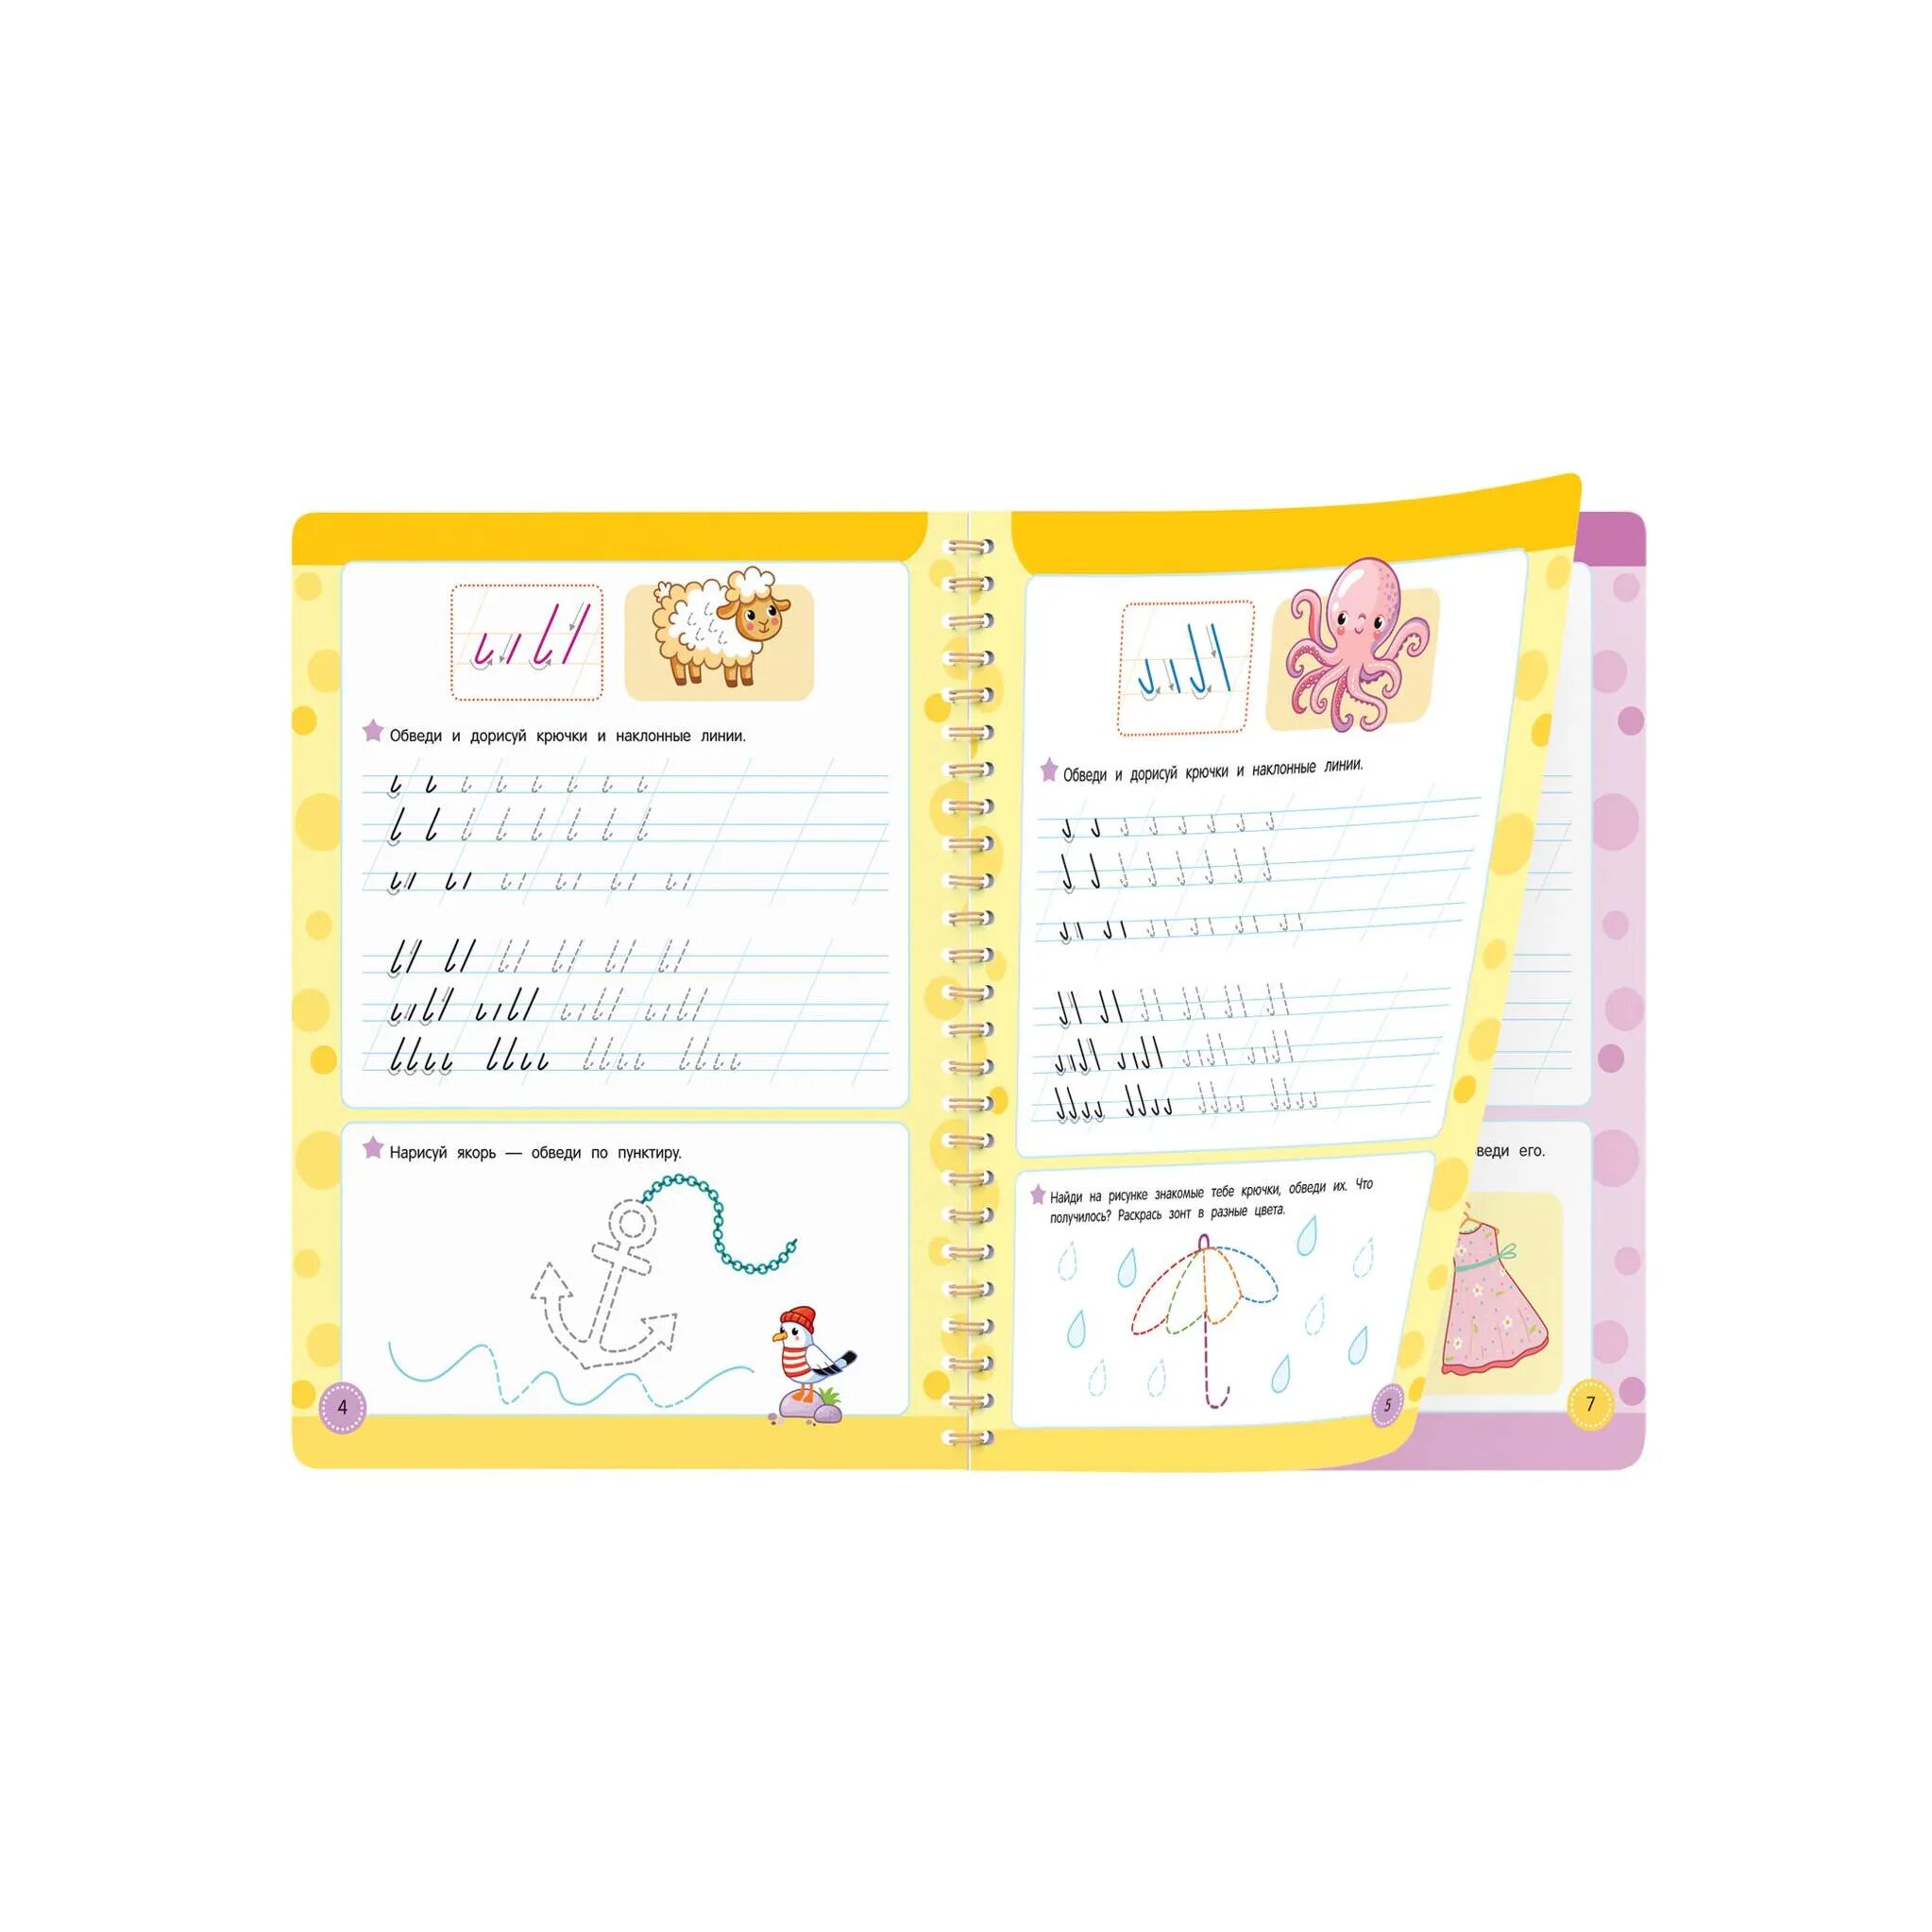 Обведи и дорисуй крючки и наклонные линии.
Нарисуй якорь — обведи по пунктиру.
4
Обведи и дорисуй крючки и наклонные линии.
Найди на рисунке знакомые тебе крючки, обведи их. Что
получилось? Раскрась зонт в разные цвета.
5
его.
7